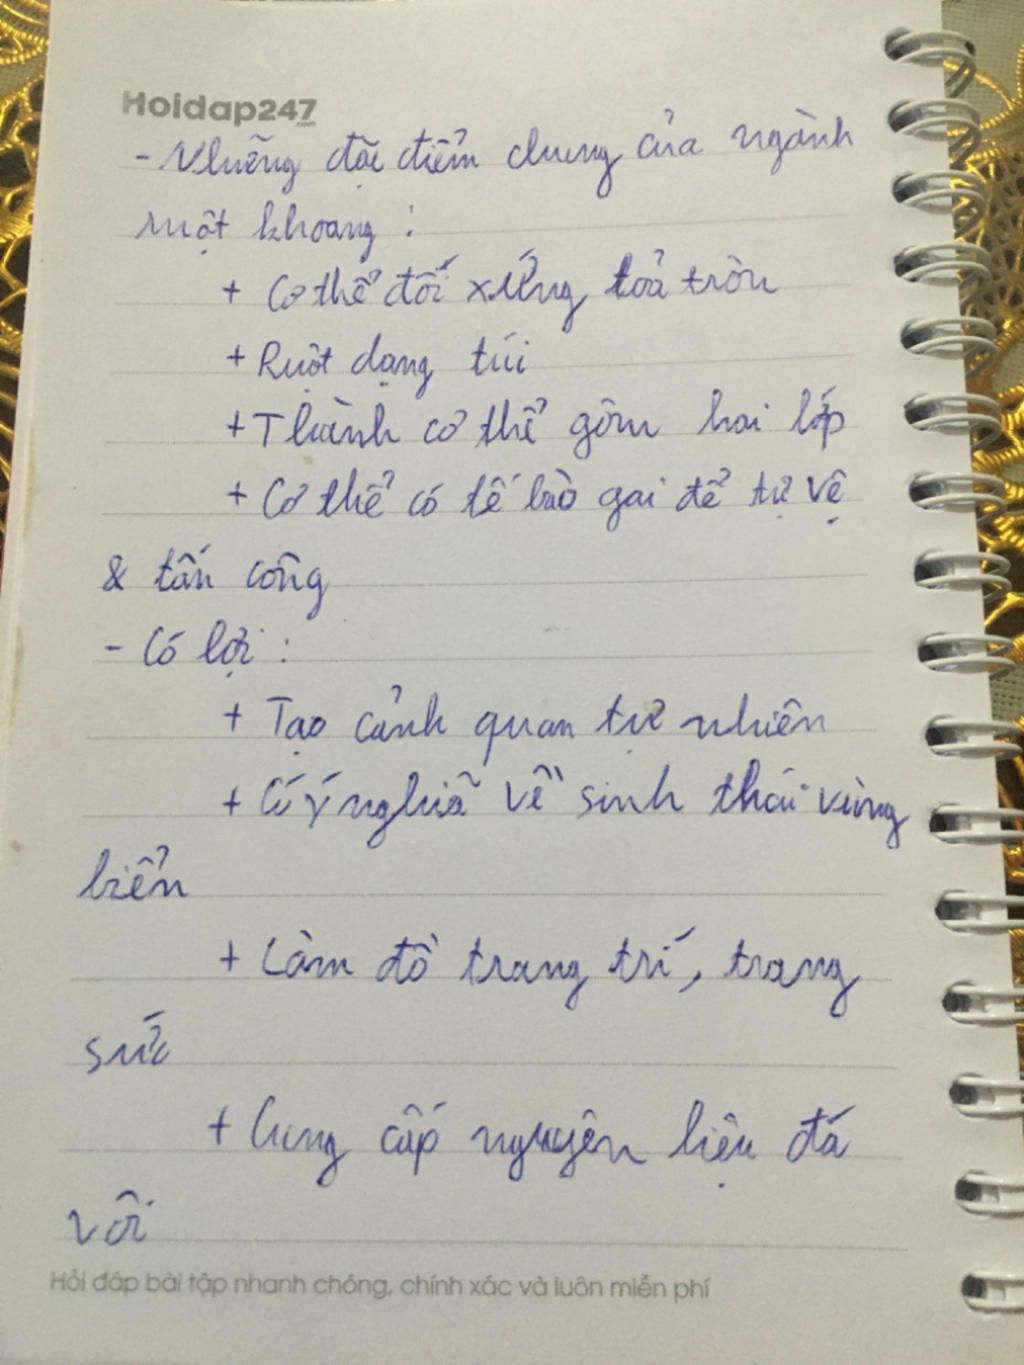 Hoidap247
- Những đặc điểm chung của ngành
ruột khoang :
+ Cơ thể đối xứng toả tròn
+ Ruột dạng túi
+ Thành cơ thể gồm hai lớp
+ Cơ thể có tế bào gai để tự vệ
& tấn công
- Có lợi :
+ Tạo cảnh quan tự nhiên
+ Có ý nghĩa về sinh thái vùng
biển
+ Làm đồ trang trí, trang
sức
+ Cung cấp nguyên liệu đá
vôi
Hỏi đáp bài tập nhanh chóng, chính xác và luôn miễn phí